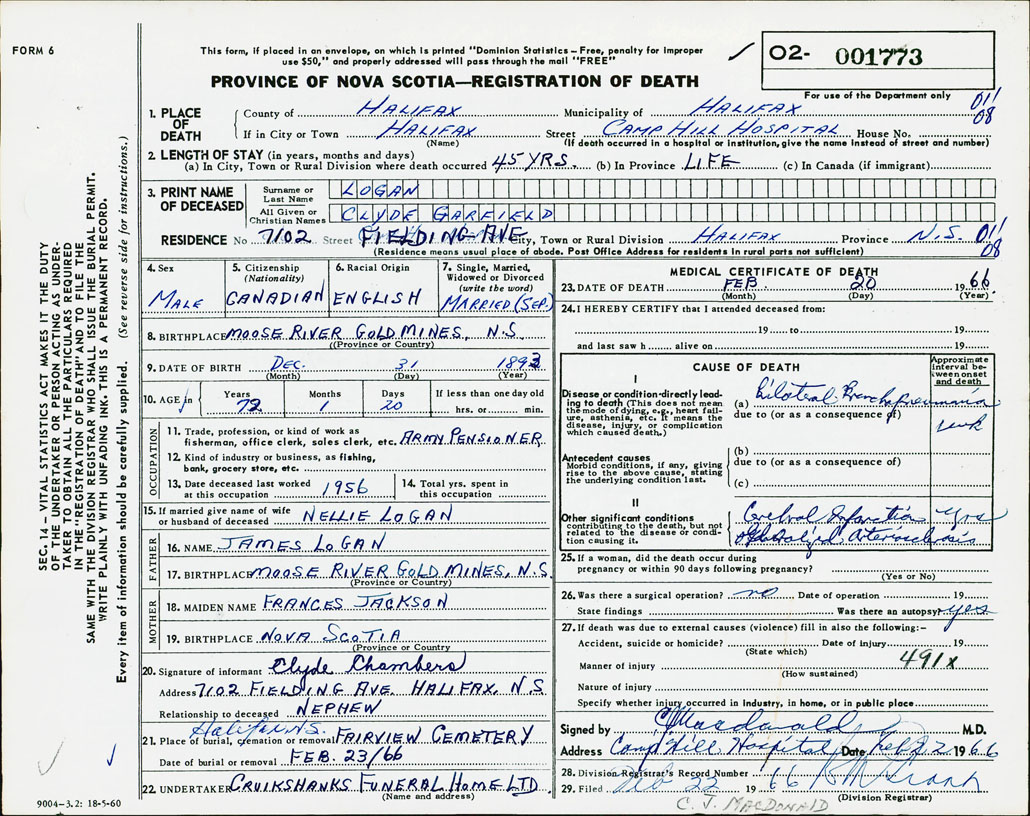 FORM 6
This form, if placed in an envelope, on which is printed "Dominion Statistics – Free, penalty for improper
use $50," and properly addressed will pass through the mail "FREE"
PROVINCE OF NOVA SCOTIA—REGISTRATION OF DEATH
02- 001773
For use of the Department only
011
08
1. PLACE OF DEATH
County of HALIFAX Municipality of HALIFAX
If in City or Town HALIFAX Street CAMP HILL HOSPITAL House No.
(Name) (If death occurred in a hospital or institution, give the name instead of street and number)
2. LENGTH OF STAY (in years, months and days)
(a) In City, Town or Rural Division where death occurred 45 YRS. (b) In Province LIFE (c) In Canada (if immigrant)
3. PRINT NAME OF DECEASED
Surname or Last Name LOGAN
All Given or Christian Names CLYDE GARFIELD
RESIDENCE No 7102 Street FIELDING AVE City, Town or Rural Division HALIFAX Province N.S. 011
08
(Residence means usual place of abode. Post Office Address for residents in rural parts not sufficient)
4. Sex
MALE
5. Citizenship
(Nationality)
CANADIAN
6. Racial Origin
ENGLISH
7. Single, Married,
Widowed or Divorced
(write the word)
MARRIED (SEP.)
8. BIRTHPLACE MOOSE RIVER GOLD MINES, N.S.
((Province or Country)
9. DATE OF BIRTH DEC. 31 1893
(Month) (Day) (Year)
10. AGE in Years Months Days If less than one day old
72 1 20 hrs. or min.
OCCUPATION
11. Trade, profession, or kind of work as
fisherman, office clerk, sales clerk, etc. ARMY PENSIONER
12. Kind of industry or business, as fishing,
bank, grocery store, etc.
13. Date deceased last worked
at this occupation 1956
14. Total yrs. spent in
this occupation
15. If married give name of wife
or husband of deceased NELLIE LOGAN
FATHER
16. NAME JAMES LOGAN
17. BIRTHPLACE MOOSE RIVER GOLD MINES, N.S.
(Province or Country)
MOTHER
18. MAIDEN NAME FRANCES JACKSON
19. BIRTHPLACE NOVA SCOTIA
(Province or Country)
20. Signature of informant Clyde Chambers
Address 7102 FIELDING AVE HALIFAX, N.S
Relationship to deceased NEPHEW
Halifax N.S.
21. Place of burial, cremation or removal FAIRVIEW CEMETERY
Date of burial or removal FEB. 23/66
22. UNDERTAKER CRUIKSHANKS FUNERAL HOME LTD
(Name and address)
9004–3.2: 18-5-60
MEDICAL CERTIFICATE OF DEATH
23. DATE OF DEATH FEB 20 1966
(Month) (Day) (Year)
24. I HEREBY CERTIFY that I attended deceased from:
19 to 19
and last saw h alive on 19
CAUSE OF DEATH
Approximate interval between onset and death
I
Disease or condition directly leading to death (This does not mean
the mode of dying, e.g., heart failure, asthenia, etc. It means the
disease, injury, or complication
which caused death.)
(a) Bilateral Bronchopneumonia
due to (or as a consequence of)
1 wk
Antecedent causes
Morbid conditions, if any, giving
rise to the above cause, stating
the underlying condition last.
(b)
due to (or as a consequence of)
(c)
II
Other significant conditions
contributing to the death, but not
related to the disease or condition causing it.
Cerebral Infarction yrs
Generalized Arteriosclerosis
25. If a woman, did the death occur during
pregnancy or within 90 days following pregnancy?
(Yes or No)
26. Was there a surgical operation? no Date of operation 19
State findings Was there an autopsy? yes
27. If death was due to external causes (violence) fill in also the following:–
Accident, suicide or homicide? Date of injury 19
(State which)
Manner of injury 491x
(How sustained)
Nature of injury
Specify whether injury occurred in industry, in home, or in public place
Signed by C J Macdonald M.D.
Address Camp Hill Hospital Date Feb 22 1966
28. Division Registrar's Record Number
29. Filed Feb 22 1966
(Division Registrar)
C. J. MACDONALD
SEC. 14– VITAL STATISTICS ACT MAKES IT THE DUTY
OF THE UNDERTAKER OR PERSON ACTING AS UNDERTAKER TO OBTAIN ALL THE PARTICULARS REQUIRED
IN THE "REGISTRATION OF DEATH" AND TO FILE THE
SAME WITH THE DIVISION REGISTRAR WHO SHALL ISSUE THE BURIAL PERMIT.
WRITE PLAINLY WITH UNFADING INK. THIS IS A PERMANENT RECORD.
Every item of information should be carefully supplied. (See reverse side for instructions.)